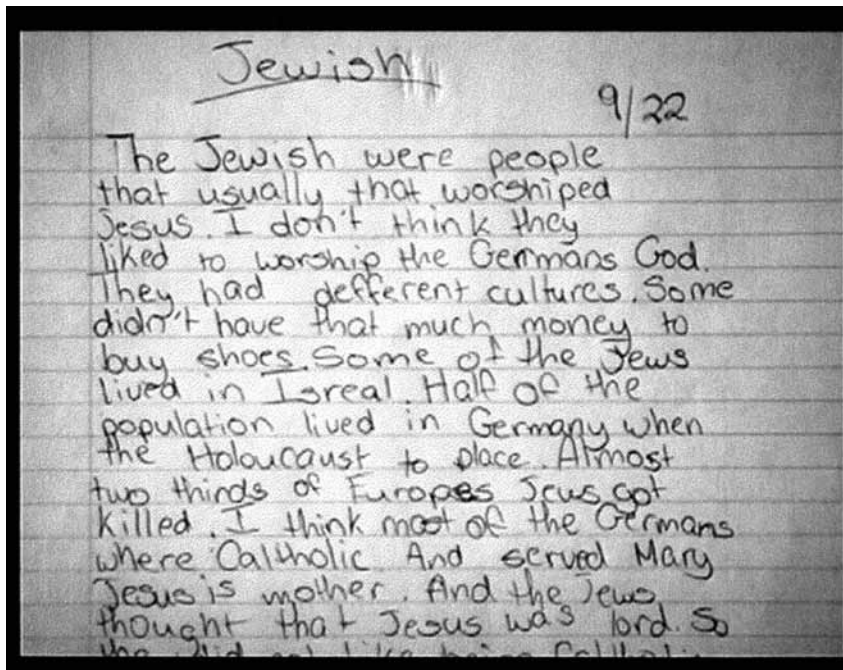 Jewish
9/22
The Jewish were people
that usually that worshiped
Jesus. I don't think they
liked to worship the Germans God.
They had defferent cultures. Some
didn't have that much money to
buy shoes. Some of the Jews
lived in Isreal. Half of the
population lived in Germany when
the Holoucaust to place. Almost
two thinds of Europes Jews got
killed. I think most of the Germans
where Caltholic. And served Mary
Jesus is mother. And the Jews
thought that Jesus was lord. So
did not like being